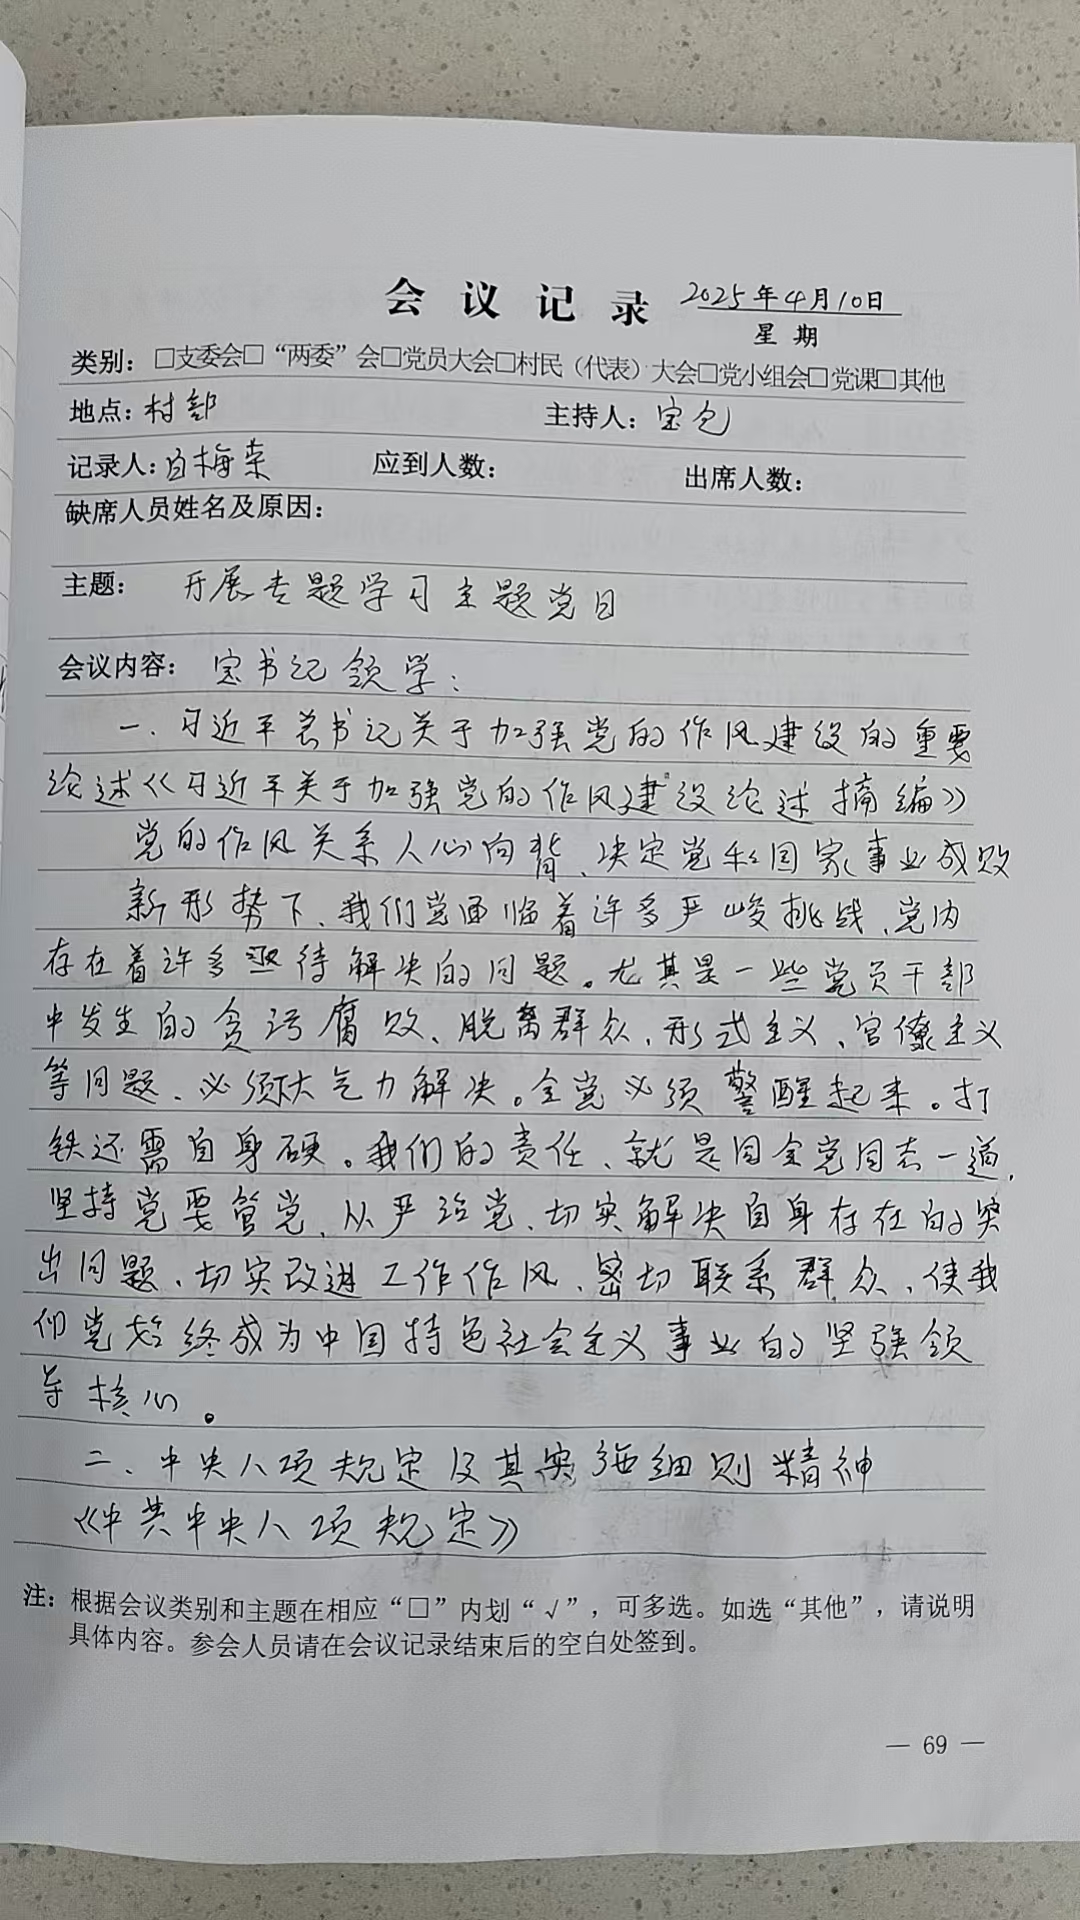 会议记录 2025年4月10日
星期
类别：□支委会□“两委”会□党员大会□村民（代表）大会□党小组会□党课□其他
地点：村部 主持人：宝仓
记录人：白梅荣 应到人数： 出席人数：
缺席人员姓名及原因：
主题： 开展专题学习主题党日
会议内容：宝书记领学：
一、习近平总书记关于加强党的作风建设的重要
论述《习近平关于加强党的作风建设论述摘编》
党的作风关系人心向背、决定党和国家事业成败
新形势下、我们党面临着许多严峻挑战、党内
存在着许多亟待解决的问题。尤其是一些党员干部
中发生的贪污腐败、脱离群众、形式主义、官僚主义
等问题、必须大气力解决。全党必须警醒起来。打
铁还需自身硬。我们的责任、就是同全党同志一道，
坚持党要管党、从严治党、切实解决自身存在的突
出问题、切实改进工作作风、密切联系群众、使我
们党始终成为中国特色社会主义事业的坚强领
导核心。
二、中央八项规定及其实施细则精神
《中共中央八项规定》
注：根据会议类别和主题在相应“□”内划“√”，可多选。如选“其他”，请说明
具体内容。参会人员请在会议记录结束后的空白处签到。
— 69 —